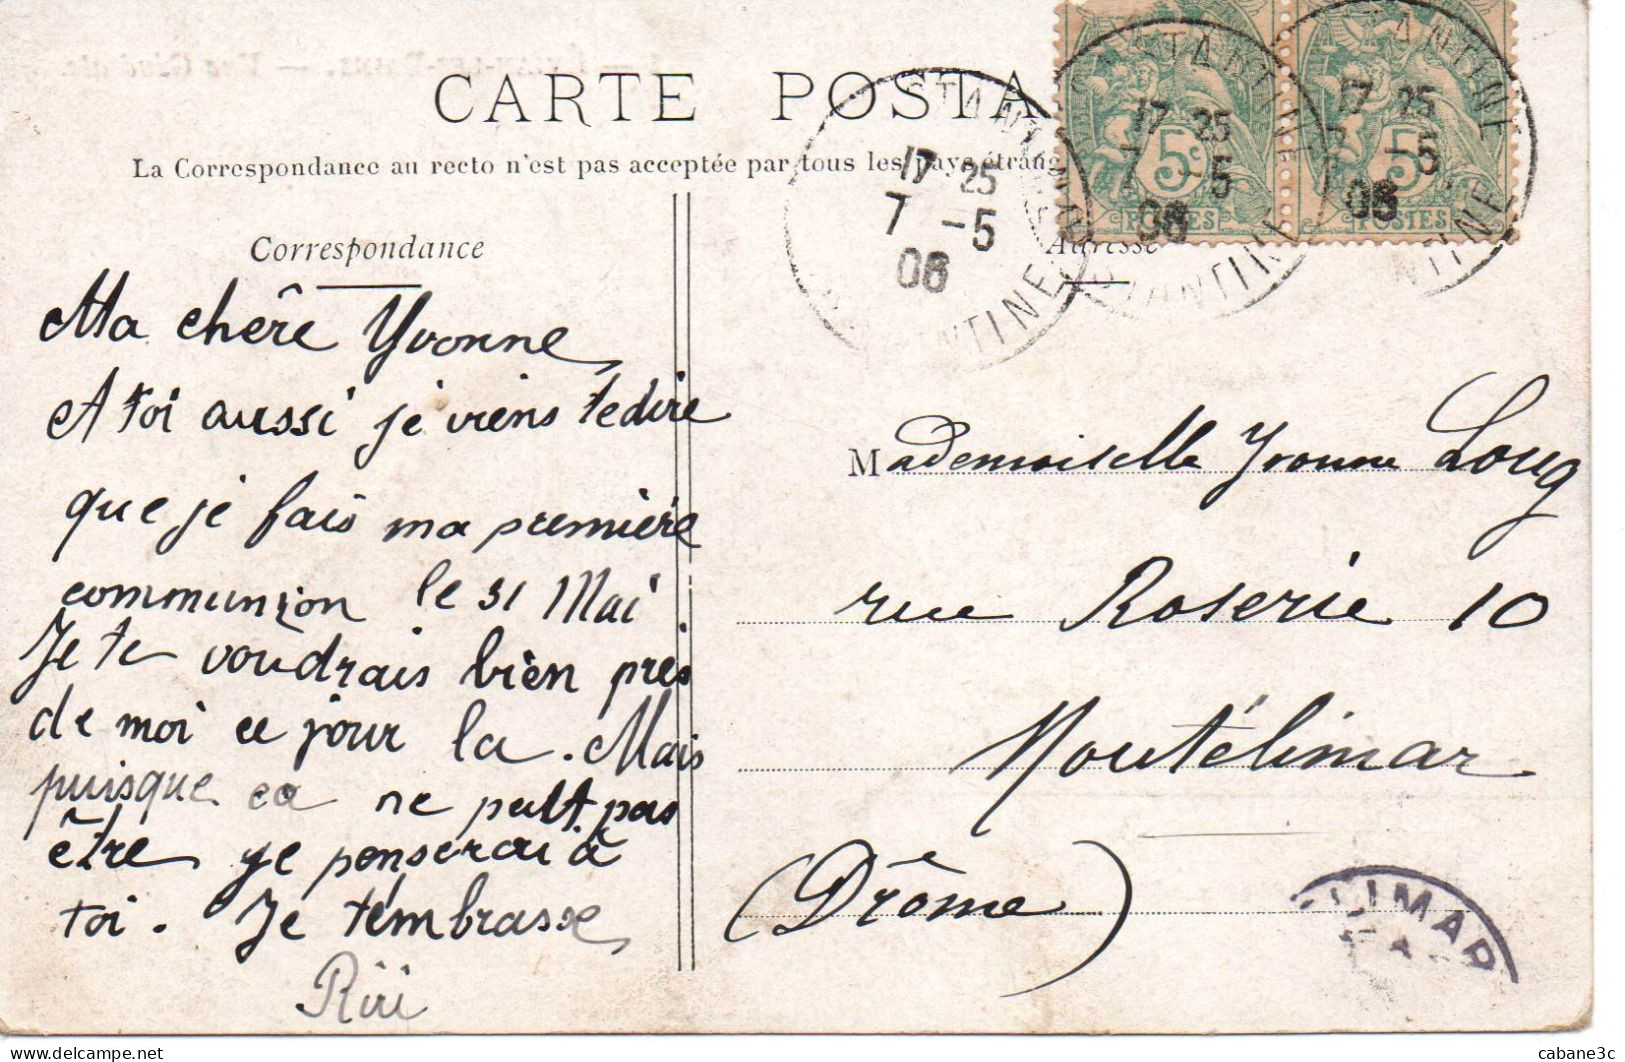 CARTE POSTA
La Correspondance au recto n'est pas acceptée par tous les pays étrang
Correspondance
Adresse
17 25
7 -5
06
CONSTANTINE
CONSTANTINE
17 25
7 -5
06
5c
POSTES
17 25
7 -5
06
5c
POSTES
Ma chêre Yvonne
A toi aussi je viens te dire
que je fais ma premiére
communion le 31 Mai
Je te voudrais bien près
de moi ce jour la. Mais
puisque ca ne peut pas
être je penserai à
toi. Je t'embrasse
Riri
Mademoiselle Yvonne Loug
rue Roserie 10
Montélimar
(Drôme)
LIMAR
cabane3c